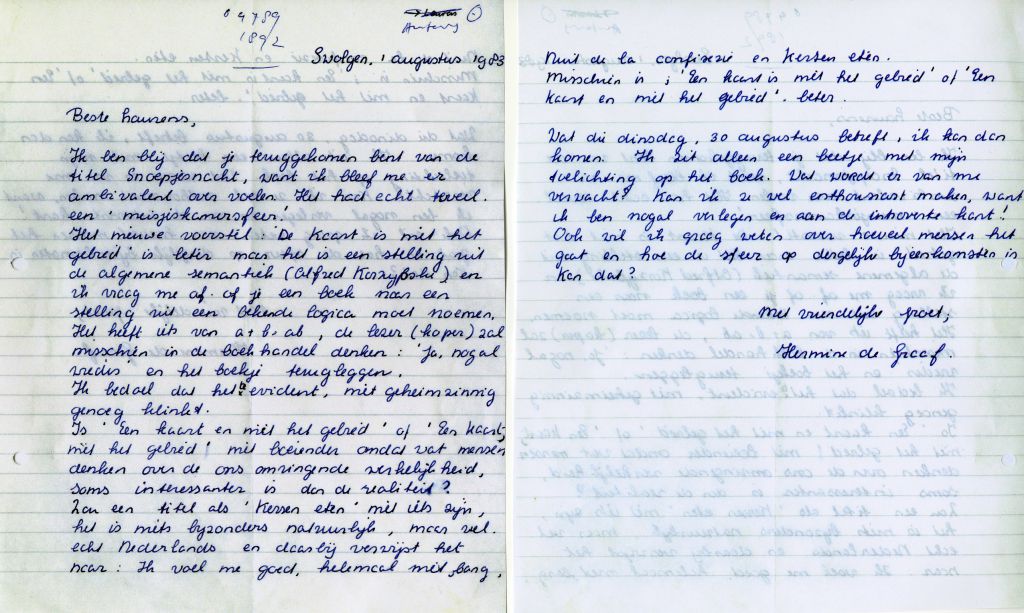 04789
1892
Swolgen, 1 augustus 1983
Beste Laurens,
Ik ben blij dat je teruggekomen bent van de
titel Snoepjesnacht, want ik bleef me er
ambivalent over voelen. Het had echt teveel
een 'meisjeskamersfeer'.
Het nieuwe voorstel: 'De kaart is niet het
gebied' is beter maar het is een stelling uit
de algemene semantiek (Alfred Korzybski) en
ik vraag me af of je een boek naar een
stelling uit een bekende logica moet noemen.
Het heeft iets van a+b=ab, de lezer (koper) zal
misschien in de boekhandel denken: 'Ja, nogal
wiedes' en het boekje terugleggen.
Ik bedoel dat het evident, niet geheimzinnig
genoeg klinkt.
Is 'Een kaart en niet het gebied' of 'Een kaart,
niet het gebied' niet boeiender omdat wat mensen
denken over de ons omringende werkelijkheid,
soms interessanter is dan de realiteit?
Zou een titel als 'Kersen eten' niet iets zijn,
het is niets byzonders natuurlijk, maar wel
echt Nederlands en daarbij verwijst het
naar: Ik voel me goed, helemaal niet bang,
Nuit de la confiserie en Kersen eten.
Misschien is; 'Een kaart is niet het gebied' of 'Een
kaart en niet het gebied'. beter.
Wat die dinsdag, 30 augustus betreft, ik kan dan
komen. Ik zit alleen een beetje met mijn
toelichting op het boek. Wat wordt er van me
verwacht? Kan ik ze wel enthousiast maken, want
ik ben nogal verlegen en aan de introverte kant!
Ook wil ik graag weten over hoeveel mensen het
gaat en hoe de sfeer op dergelijke bijeenkomsten is
Kan dat?
Met vriendelijke groet,
Hermine de Graaf